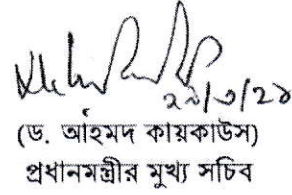 (ড. আহমদ কায়কাউস)
প্রধানমন্ত্রীর মুখ্য সচিব